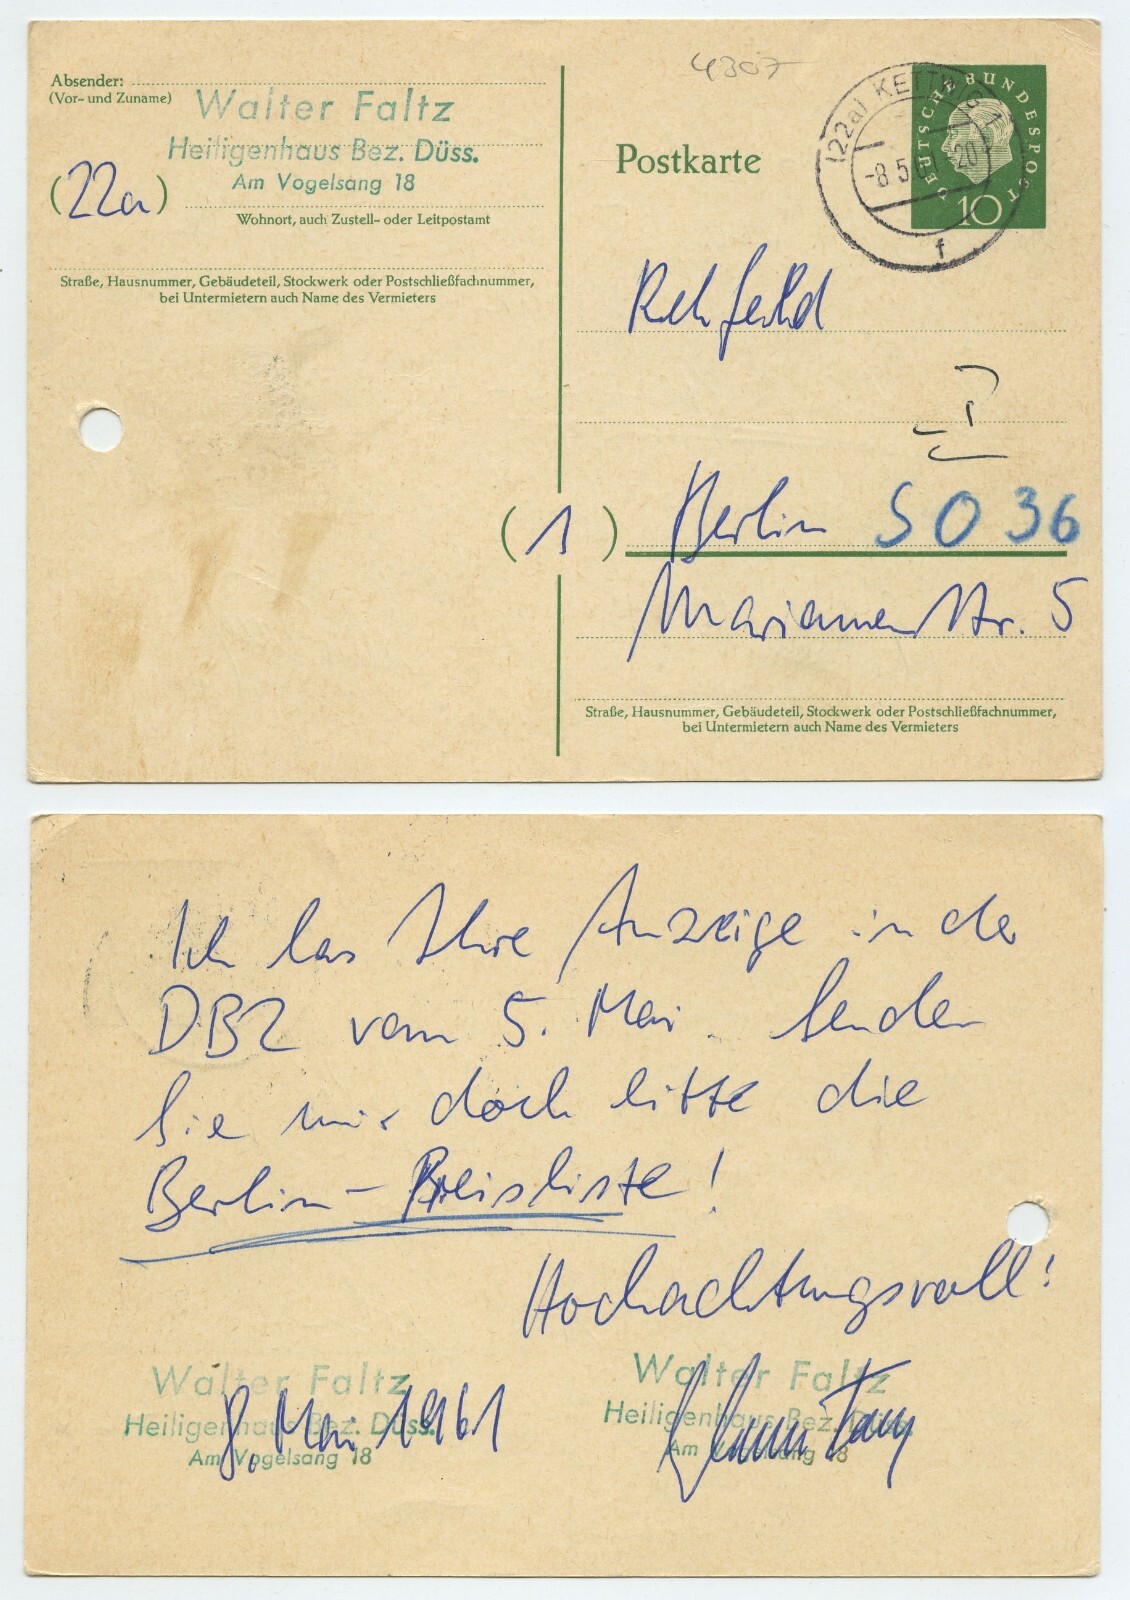 4307
Absender:
(Vor- und Zuname)
Walter Faltz
Heiligenhaus Bez. Düss.
Am Vogelsang 18
(22a)
Wohnort, auch Zustell- oder Leitpostamt
Straße, Hausnummer, Gebäudeteil, Stockwerk oder Postschließfachnummer,
bei Untermietern auch Name des Vermieters
Postkarte
DEUTSCHE BUNDESPOST
10
(22a) KETTWIG 1
-8.5.61-20
f
Rehfeld
(1) Berlin SO 36
Mariannenstr. 5
Straße, Hausnummer, Gebäudeteil, Stockwerk oder Postschließfachnummer,
bei Untermietern auch Name des Vermieters
Ich las Ihre Anzeige in der
DBZ vom 5. Mai. Senden
Sie mir doch bitte die
Berlin-Preisliste!
Hochachtungsvoll!
Walter Faltz
Heiligenhaus Bez. Düss.
Am Vogelsang 18
8. Mai 1961
Walter Faltz
Heiligenhaus Bez. Düss.
Am Vogelsang 18